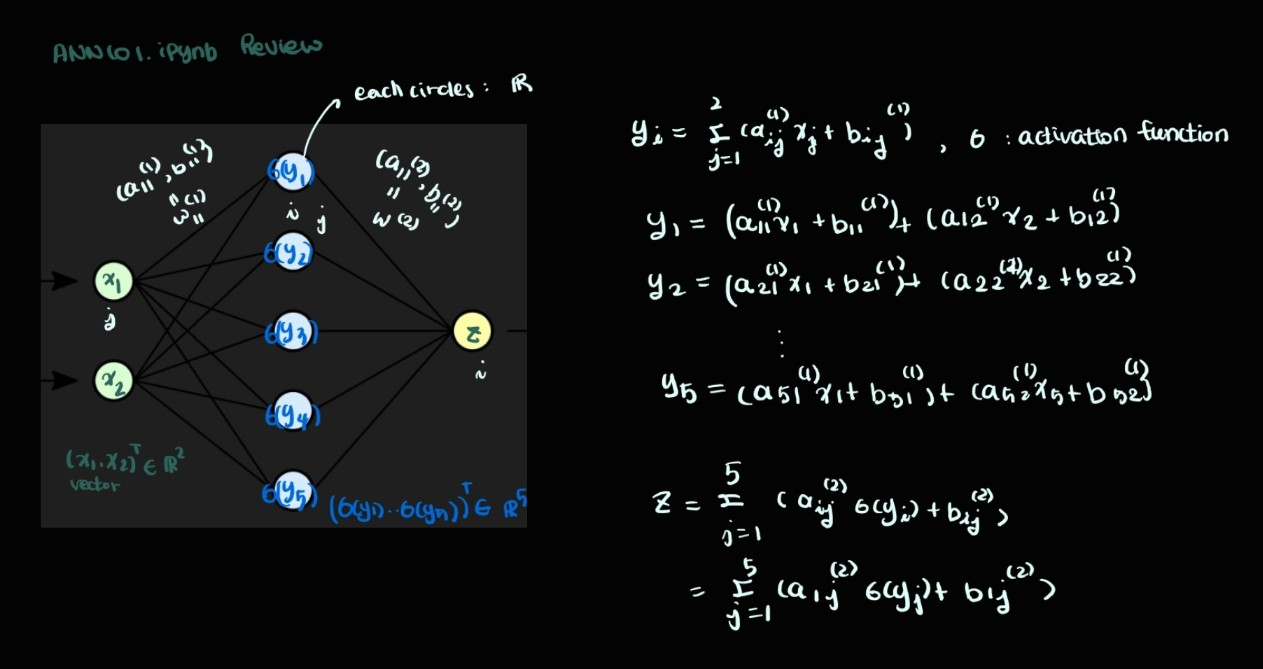 ANN(01.ipynb Review
each circles : ℝ
(a₁₁⁽¹⁾, b₁₁⁽¹⁾)
"
w₁₁⁽¹⁾
(a₁₁⁽²⁾, b₁₁⁽²⁾)
"
w⁽²⁾
σ(y₁)
i j
σ(y₂)
x₁
j
σ(y₃)
z
i
x₂
σ(y₄)
(x₁, x₂)ᵀ ∈ ℝ²
vector
σ(y₅)
(σ(y₁)...σ(y₅))ᵀ ∈ ℝ⁵
yᵢ = Σ_{j=1}^{2} (aᵢⱼ⁽¹⁾xⱼ + bᵢⱼ⁽¹⁾) , σ : activation function
y₁ = (a₁₁⁽¹⁾x₁ + b₁₁⁽¹⁾) + (a₁₂⁽¹⁾x₂ + b₁₂⁽¹⁾)
y₂ = (a₂₁⁽¹⁾x₁ + b₂₁⁽¹⁾) + (a₂₂⁽¹⁾x₂ + b₂₂⁽¹⁾)
⋮
y₅ = (a₅₁⁽¹⁾x₁ + b₅₁⁽¹⁾) + (a₅₂⁽¹⁾x₅ + b₅₂⁽¹⁾)
z = Σ_{j=1}^{5} (aᵢⱼ⁽²⁾ σ(yᵢ) + bᵢⱼ⁽²⁾)
= Σ_{j=1}^{5} (a₁ⱼ⁽²⁾ σ(yⱼ) + b₁ⱼ⁽²⁾)